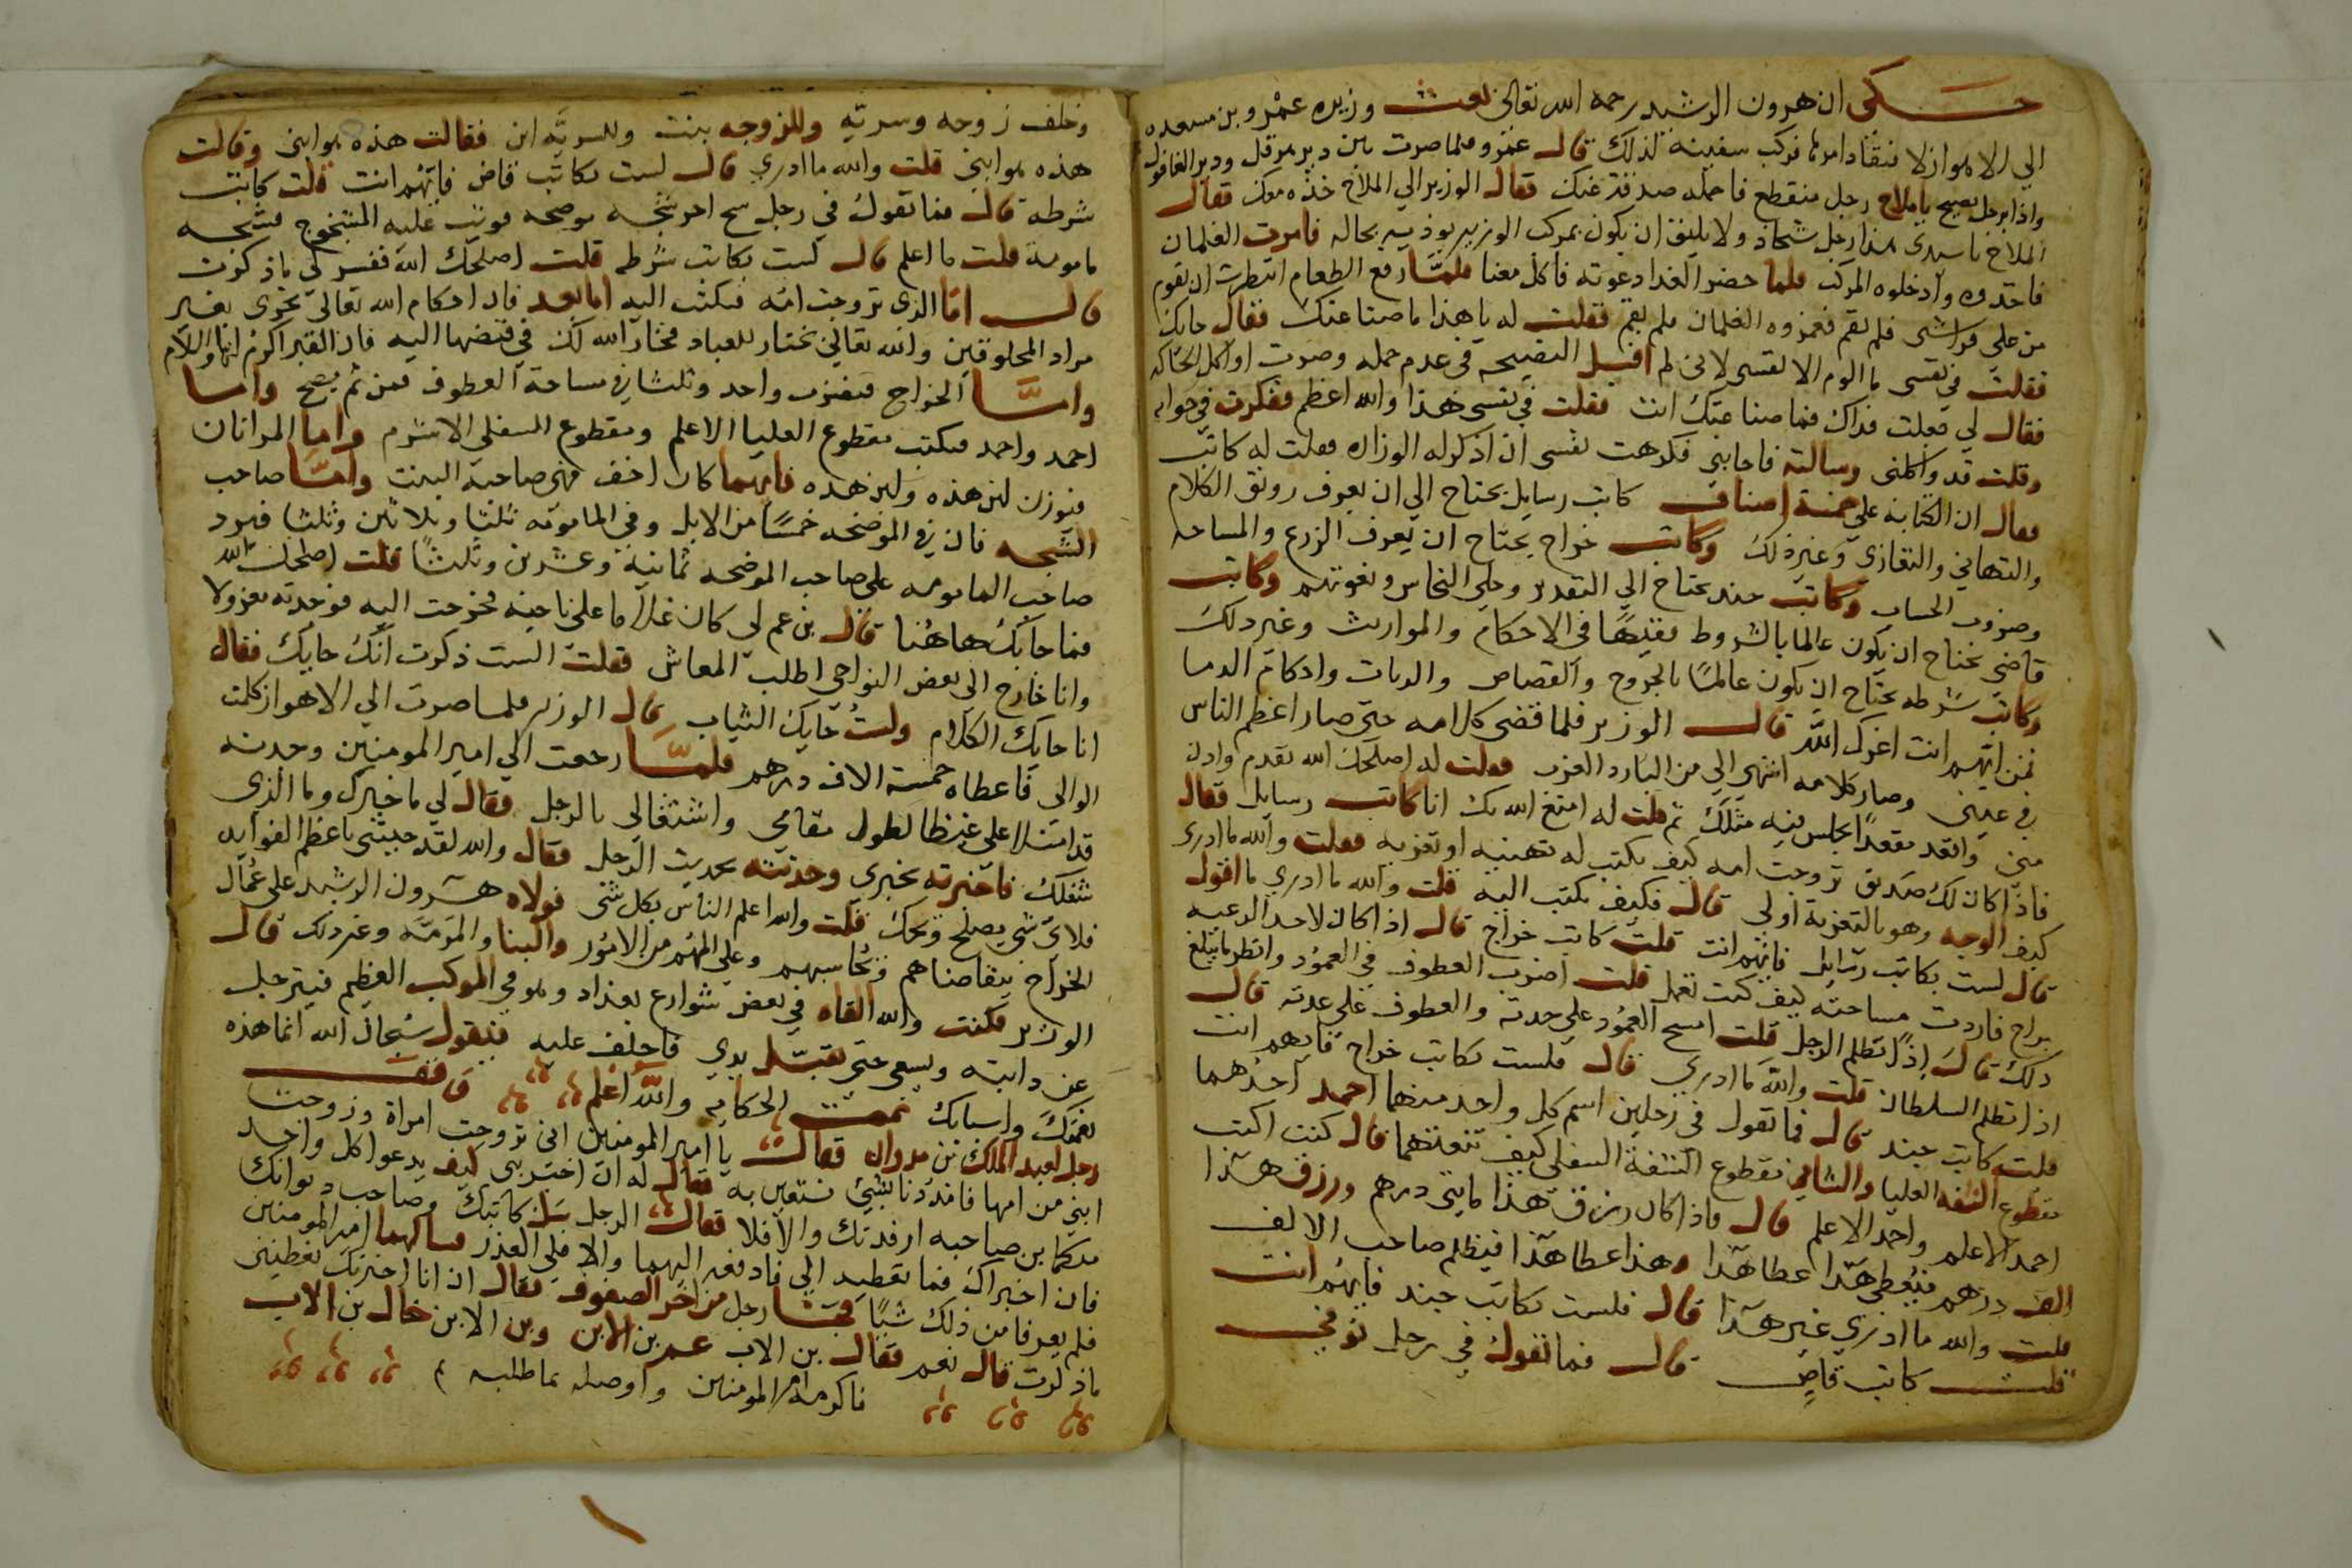 حكى ان هرون الرشيد رحمه الله تعالى بعث وزيره عمرو بن مسعده
الي الاهواز لافتقاد امرها فركب سفينة لذلك قال عمرو فلما صرت بين دير هرقل ودير العاقول
واذا برجل يصيح يا ملاح رجل منقطع فاحمله صدقة عنك فقال الوزير الي الملاح خذه معك فقال
الملاح يا سيدى هذا رجل شحاذ ولا يليق ان يكون بمركب الوزير يوذيه بحاله فامرت الغلمان
فاخذوه وادخلوه المركب فلما حضر الغدا دعوته فاكل معنا فلما رفع الطعام انتظرت ان يقوم
من على فراشى فلم يقم فغمزوه الغلمان فلم يقم فقلت له يا هذا ما صناعتك فقال حايك
فقلت في نفسى ما الوم الا نفسى لانى لم اقبل النصيحه في عدم حمله وصرت اواكل الحاكه
فقال لي جعلت فداك فما صناعتك انت فقلت في نفسى هذا والله اعظم ففكرت في جوابه
وقلت قد واكلنى وسالته فاجابني فكرهت نفسى ان اذكر له الوزاره فقلت له كاتب
فقال ان الكتابة على خمسة اصناف كاتب رسايل يحتاج الي ان يعرف رونق الكلام
والتهاني والتعازى وغير ذلك وكاتب خراج يحتاج ان يعرف الزرع والمساحه
وضروب الحساب وكاتب جند يحتاج الي التقدير وحلي الناس ونعوتهم وكاتب
قاضي يحتاج ان يكون عالما بالشروط فقيها في الاحكام والمواريث وغير ذلك
وكاتب شرطه يحتاج ان يكون عالما بالجروح والقصاص والديات واحكام الدما
فمن ايهم انت اعزك الله قال الوزير فلما قضى كلامه حتى صار اعظم الناس
في عينى وصار كلامه اشهى الي من البارد العذب فقلت له اصلحك الله تقدم وادن
منى واقعد مقعدا يجلس فيه مثلك ثم قلت له امتع الله بك انا كاتب رسايل فقال
فاذا كان لك صديق تزوجت امه كيف يكتب له تهنيه او تعزيه فقلت والله ما ادرى
كيف الوجه وهو بالتعزية اولى قال فكيف يكتب اليه قلت والله ما ادري ما اقول
قال لست بكاتب رسايل فايهم انت قلت كاتب خراج قال اذا كان لاحد الرعيه
براح فاردت مساحته كيف كنت تعمل قلت اضرب العطوف في العمود وانظر ما يبلغ
ذلك قال اذا تظلم الرجل قلت امسح العمود على حدته والعطوف على عدته قال
اذا تظلم السلطان قلت والله ما ادري قال فلست بكاتب خراج فايهم انت
قلت كاتب جند قال فما تقول في رجلين اسم كل واحد منهما احمد احدهما
مقطوع الشفه العليا والثاني مقطوع الشفة السفلي كيف تنعتهما قال كنت اكتب
احمد الاعلم واحمد الاعلم قال فاذا كان رزق هذا مايتي درهم ورزق هذا
الف درهم فيعطى هذا عطا هذا وهذا عطا هذا فيظلم صاحب الالف
قلت والله ما ادري غير هذا قال فلست بكاتب جند فايهم انت
قلت كاتب قاض قال فما تقول في رجل توفي
وخلف زوجه وسريه وللزوجه بنت وللسريه ابن فقالت هذه هو ابنى وقالت
هذه هو ابنى قلت والله ما ادري قال لست بكاتب قاض فايهم انت قلت كاتب
شرطه قال فما تقول في رجل شج اخر شجه موضحه فوثب عليه المشجوج فشجه
مامومة قلت ما اعلم قال لست بكاتب شرطه قلت اصلحك الله ففسر لي ما ذكرت
قال اما الذى تزوجت امه فيكتب اليه اما بعد فان احكام الله تعالى تجرى بغير
مراد المخلوقين والله تعالى يختار للعباد فخار الله لك في قبضها اليه فان القبر اكرم لها والسلام
واما الخراج فيضرب واحد وثلثا في مساحة العطوف فمن ثم يصح واما
احمد واحمد فيكتب مقطوع العليا الاعلم ومقطوع السفلى الاشرم واما المراتان
فيوزن لبن هذه ولبن هذه فايهما كان اخف فهى صاحبة البنت واما صاحب
الشجه فان في الموضحه خمسا من الابل وفي المامومه ثلثا وثلاثين وثلثا فيرد
صاحب المامومه على صاحب الموضحه ثمانية وعشرين وثلثا قلت اصلحك الله
فما جابك هاهنا قال بن عم لي كان عاملا على ناحيه فخرجت اليه فوجدته معزولا
وانا خارج الى بعض النواحي اطلب المعاش فقلت الست ذكرت انك حايك فقال
انا حايك الكلام ولست حايك الثياب قال الوزير فلما صرت الى الاهواز كلمت
الوالي فاعطاه خمسة الاف درهم فلما رجعت الي امير المومنين وجدته
قد امتلا على غيظا لطول مقامي واشتغالى بالرجل فقال لي ما خبرك وما الذى
شغلك فاخبرته بخبرى وحدثته بحديث الرجل فقال والله لقد جيتنى باعظم الفوايد
فلاى شى يصلح ويحك قلت والله اعلم الناس بكل شى فولاه هرون الرشيد على عمال
الخراج يتقاضاهم ويحاسبهم وعلي المهم من الامور والبنا والمرمه وغير ذلك قال
الوزير فكنت والله القاه في بعض شوارع بغداد وهو في الموكب العظيم فيترجل
عن دابته ويسعى حتى يقبل يدي فاحلف عليه فيقول سبحان الله انما هذه
نعمتك واسبابك تمت الحكايه والله اعلم وقف
رجل لعبد الملك بن مروان فقال يا امير المومنين انى تزوجت امراة وزوجت
ابني من امها فامددنا بشيئ نستعين به فقال له ان اخبرتنى كيف يدعوا كل واحد
منكما بن صاحبه ارفدتك والا فلا فقال الرجل سل كاتبك وصاحب ديوانك
فان اخبراك فما تعطيه الي فادفعه اليهما والا فلي العذر فسالهما امير المومنين
فلم يعرفا من ذلك شيا فجا رجل من اخر الصفوف فقال ان انا اخبرتك تعطينى
ما ذكرت قال نعم فقال بن الاب عم بن الابن وبن الابن خال بن الاب
فاكرمه امير المومنين واوصله بما طلبه